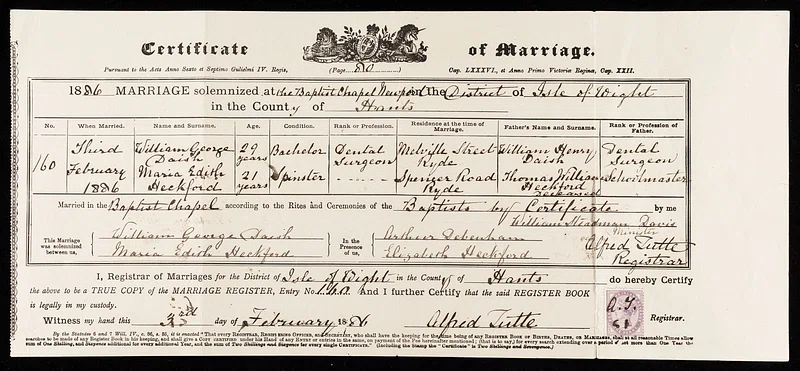 Certificate of Marriage.
Pursuant to the Acts Anno Sexto et Septimo Gulielmi IV. Regis, (Page 80) Cap. LXXXVI., et Anno Primo Victoriæ Reginæ, Cap. XXII.
1886 MARRIAGE solemnized at the Baptist Chapel Newport in the District of Isle of Wight
in the County of Hants
No. When Married. Name and Surname. Age. Condition. Rank or Profession. Residence at the time of Marriage. Father's Name and Surname. Rank or Profession of Father.
160 Third February 1886 William George Daish 29 years Bachelor Dental Surgeon Melville Street Ryde William Henry Daish Dental Surgeon
Maria Edith Heckford 21 years Spinster Spencer Road Ryde Thomas William Heckford deceased Schoolmaster
Married in the Baptist Chapel according to the Rites and Ceremonies of the Baptists by Certificate by me
William Steadman Davis
Minister
This Marriage was solemnized between us, William George Daish Maria Edith Heckford In the Presence of us, Arthur Debenham Elizabeth Heckford Alfred Tutte Registrar
I, Registrar of Marriages for the District of Isle of Wight in the County of Hants do hereby Certify
the above to be a TRUE COPY of the MARRIAGE REGISTER, Entry No. 160 And I further Certify that the said REGISTER BOOK
is legally in my custody.
Witness my hand this 3rd day of February 1886 Alfred Tutte Registrar.
A.T.
By the Statutes 6 and 7 Will. IV., c. 86, s. 35, it is enacted "That every REGISTRAR, REGISTERING OFFICER, and SECRETARY, who shall have the keeping for the time being of any REGISTER BOOK OF BIRTHS, DEATHS, OR MARRIAGES, shall at all reasonable Times allow
searches to be made of any Register Book in his keeping, and shall give a COPY CERTIFIED under his Hand of any ENTRY or ENTRIES in the same, on payment of the Fee hereinafter mentioned; (that is to say,) for every search extending over a period not more than One Year the
sum of One Shilling, and Sixpence additional for every additional Year, and the Sum of Two Shillings and Sixpence for every single CERTIFICATE." (Including the Stamp the "Certificate" is Two Shillings and Sevenpence.)